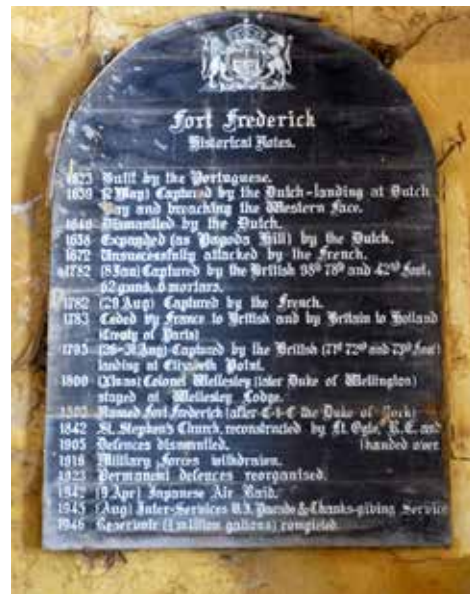 Fort Frederick
Historical Notes.
1623 Built by the Portuguese.
1639 (2 May) Captured by the Dutch-landing at Dutch
Bay and breaching the Western Face.
Dismantled by the Dutch.
Expanded (as Pagoda Hill) by the Dutch.
1672 Unsuccessfully attacked by the French.
1782 (8 Jan) Captured by the British 98th 78th and 42nd Foot,
62 guns, 6 mortars.
1782 (29 Aug) Captured by the French.
1783 Ceded by France to British and by Britain to Holland
(Treaty of Paris)
1795 Captured by the British (71st 72nd and 73rd Foot)
landing at Elizabeth Point.
1800 (Xmas) Colonel Wellesley (later Duke of Wellington)
stayed at Wellesley Lodge.
1803 Named Fort Frederick (after C-I-C the Duke of York)
1842 St. Stephen's Church, reconstructed by Lt. Ogle, R.E. and
1905 Defences dismantled. (handed over
Military forces withdrawn.
1923 Permanent defences reorganised.
1942 (9 Apr) Japanese Air Raid.
1945 (Aug) Inter-Services V.J. Parade & Thanks-giving Service
1946 Reservoir (1 million gallons) completed.